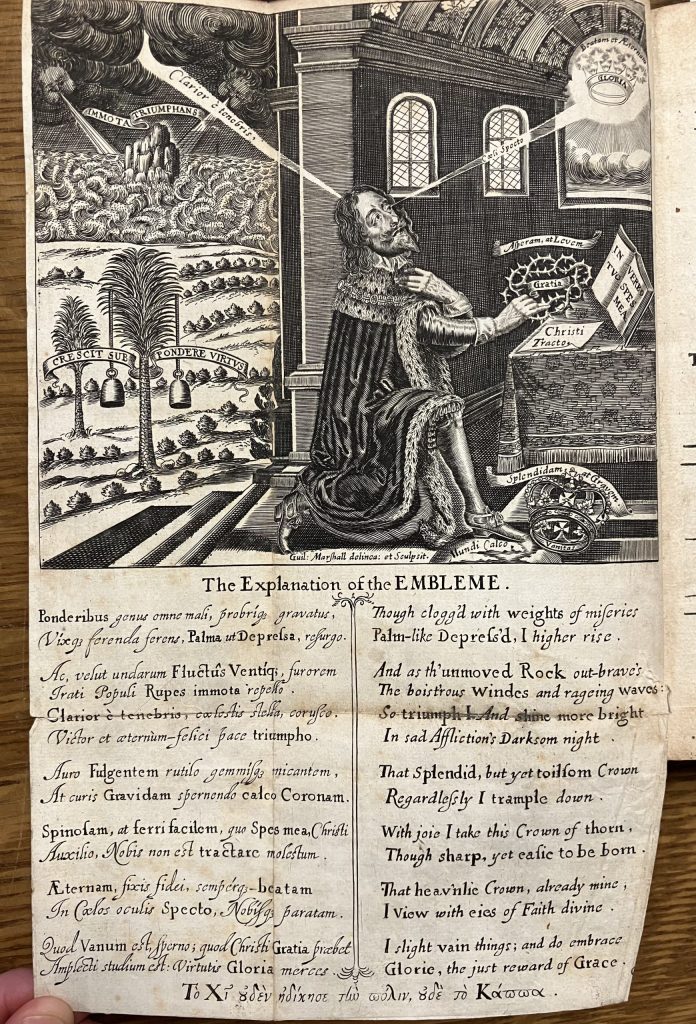 Clarior è tenebris,
IMMOTA TRIUMPHANS
Beatam et Æternam
GLORIA
Cœli Specto
Asperam, at Levem
Gratia
IN VERBO
TUO SPES
MEA
Christi
Tracto
CRESCIT SUB PONDERE VIRTVS
Splendidam, at Gravem
Vanitas
Mundi Calco
Guil: Marshall delinea: et Sculpsit.
The Explanation of the EMBLEME.
Ponderibus genus omne mali, probriq; gravatus,
Vixq; ferenda ferens, Palma ut Depreſsa, reſurgo.
Ac, velut undarum Fluctûs Ventiq;, furorem
Irati Populi Rupes immota repello.
Clarior è tenebris, cœlestis stella, coruſco.
Victor et æternùm-felici pace triumpho.
Auro Fulgentem rutilo gemmiſq; micantem,
At curis Gravidam spernendo calco Coronam.
Spinoſam, at ferri facilem, quo Spes mea, Christi
Auxilio, Nobis non est tractare molestum.
Æternam, fixis fidei, ſemperq;-beatam
In Cœlos oculis Specto, Nobiſq; paratam.
Quod Vanum est, sperno; quod Christi Gratia præbet
Amplecti studium est: Virtutis Gloria merces.
Though clogg'd with weights of miſeries
Palm-like Depreſs'd, I higher riſe.
And as th'unmoved Rock out-brave's
The boiſtrous Windes and rageing waves:
So triumph I. And shine more bright
In sad Affliction's Darksom night.
That Splendid, but yet toilſom Crown
Regardleſsly I trample down.
With joie I take this Crown of thorn,
Though sharp, yet eaſie to be born.
That heav'nlie Crown, already mine,
I View with eies of Faith divine.
I slight vain things; and do embrace
Glorie, the just reward of Grace.
Τὸ Χῖ ὐδὲν ἠδίκησε τὴν πόλιν, ὐδὲ τὸ Κάππα.